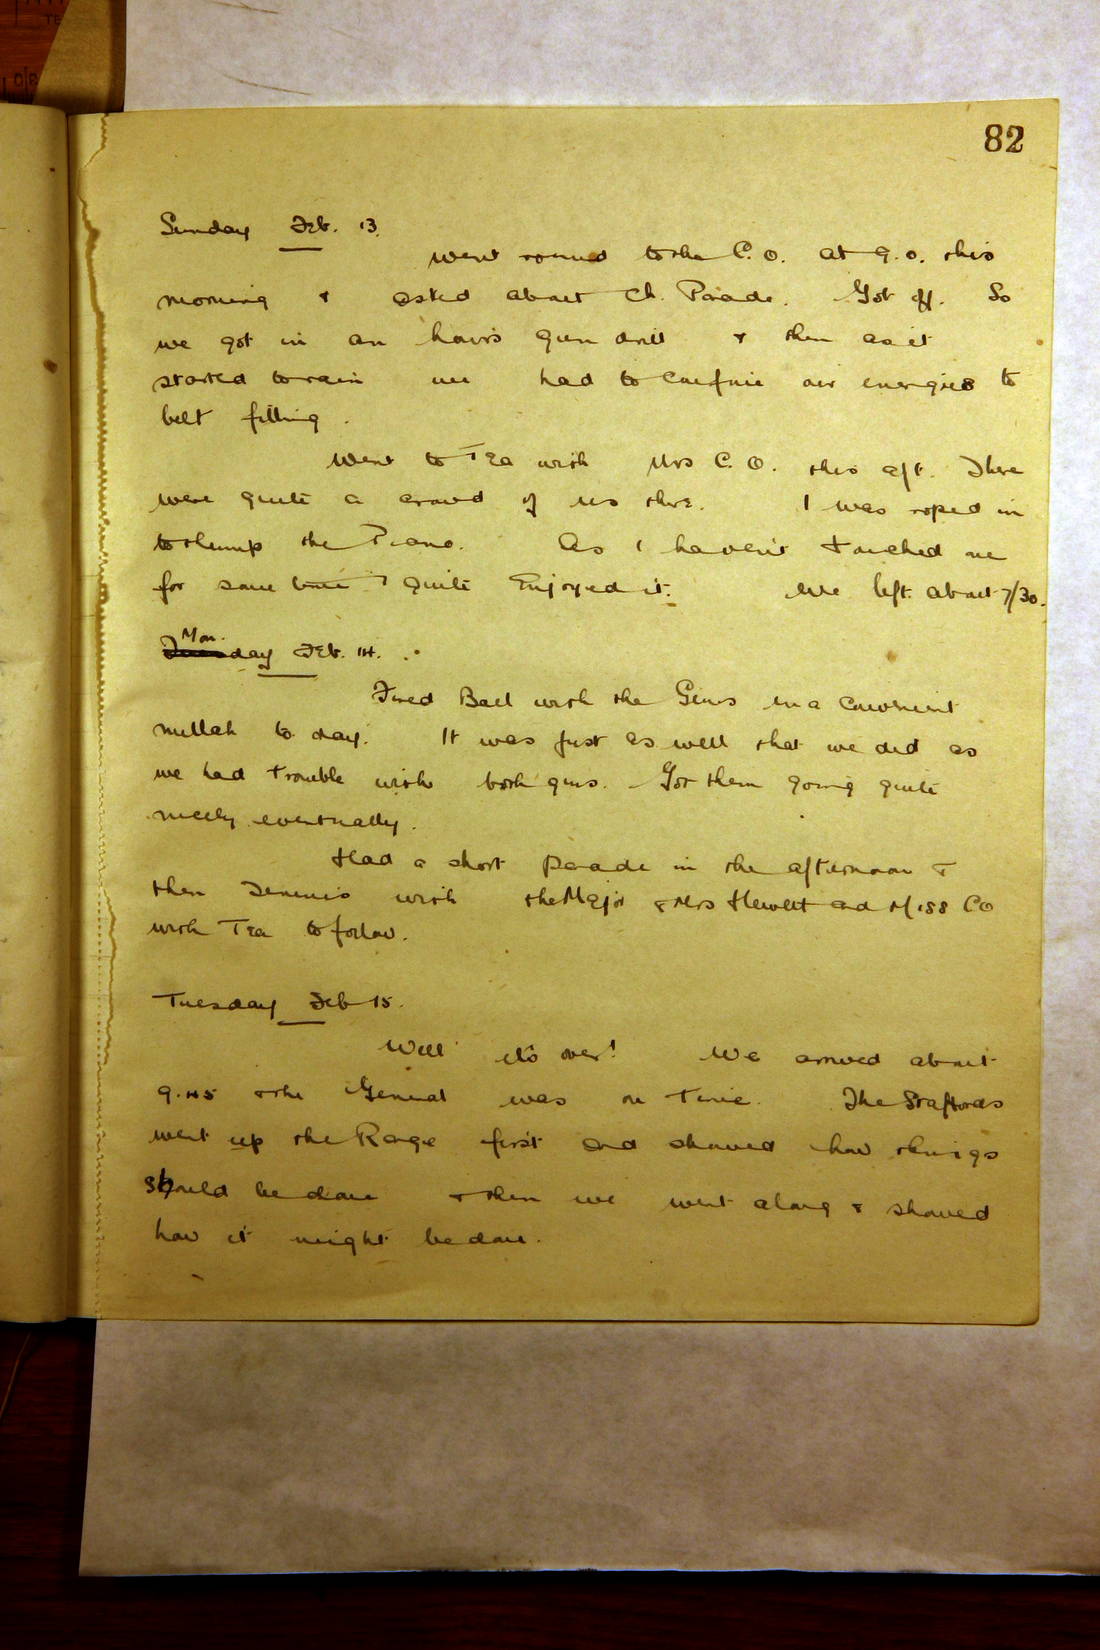 82
Sunday Feb. 13.
Went round to the C.O. at 9.0. this
morning & asked about Ch. Parade. Got off. So
we got in an hour's gun drill & then as it
started to rain we had to confine our energies to
belt filling.
Went to Tea with Mrs C.O. this aft. There
were quite a crowd of us there. I was roped in
to thump the Piano. As I haven't touched one
for some time I quite Enjoyed it. We left about 7/30.
Mon.
Tuesday Feb. 14.
Fired Ball with the Guns in a convenient
nullah to day. It was just as well that we did as
we had trouble with both guns. Got them going quite
nicely eventually.
Had a short parade in the afternoon &
then Tennis with the Major & Mrs Hewett and Miss CO
with Tea to follow.
Tuesday Feb 15.
Well it's over! We arrived about
9.45 & the General was on time. The Staffords
went up the Range first and showed how things
should be done & then we went along & showed
how it might be done.